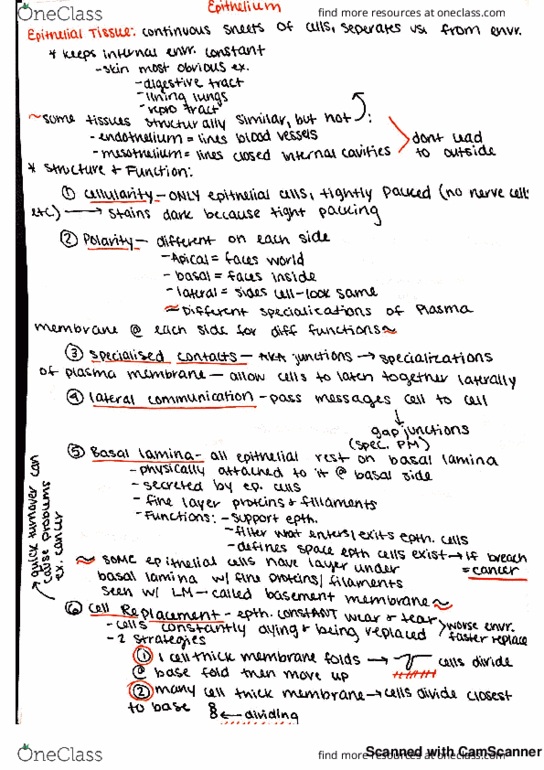 OneClass
find more resources at oneclass.com
Epithelium
Epithelial Tissue: continuous sheets of cells, seperates us from envr.
* keeps internal envr. constant
- skin most obvious ex.
- digestive tract
- lining lungs
- repro tract
~ some tissues structurally similar, but not ):
- endothelium = lines blood vessels
- mesothelium = lines closed internal cavities
dont lead to outside
* Structure + Function:
① Cellularity - ONLY epithelial cells, tightly packed (no nerve cell
etc) → stains dark because tight packing
② Polarity - different on each side
- Apical = faces world
- basal = faces inside
- lateral = sides cell - look same
≈ Different specializations of plasma
membrane @ each side for diff functions ≈
③ specialised contacts - AKA junctions → specializations
of plasma membrane - allow cells to latch together laterally
④ lateral communication - pass messages cell to cell
↓
gap junctions
(spec. PM)
⑤ Basal lamina - all epithelial rest on basal lamina
- physically attached to it @ basal side
- secreted by ep. cells
- fine layer proteins + filaments
- Functions: - support epth.
- filter what enters/exits epth. cells
- defines space epth cells exist → if breach
= cancer
≈ some epithelial cells have layer under
basal lamina w/ fine proteins/filaments
seen w/ LM - called basement membrane ~
quick turnover can
cause problems
ex. cancer
⑥ Cell Replacement - epth. constant wear + tear
- cells constantly dying + being replaced
worse envr.
faster replace
- 2 strategies
① 1 cell thick membrane folds → cells divide
@ base fold then move up
② many cell thick membrane → cells divide closest
to base ← dividing
Scanned with CamScanner
OneClass
find more resources at oneclass.com